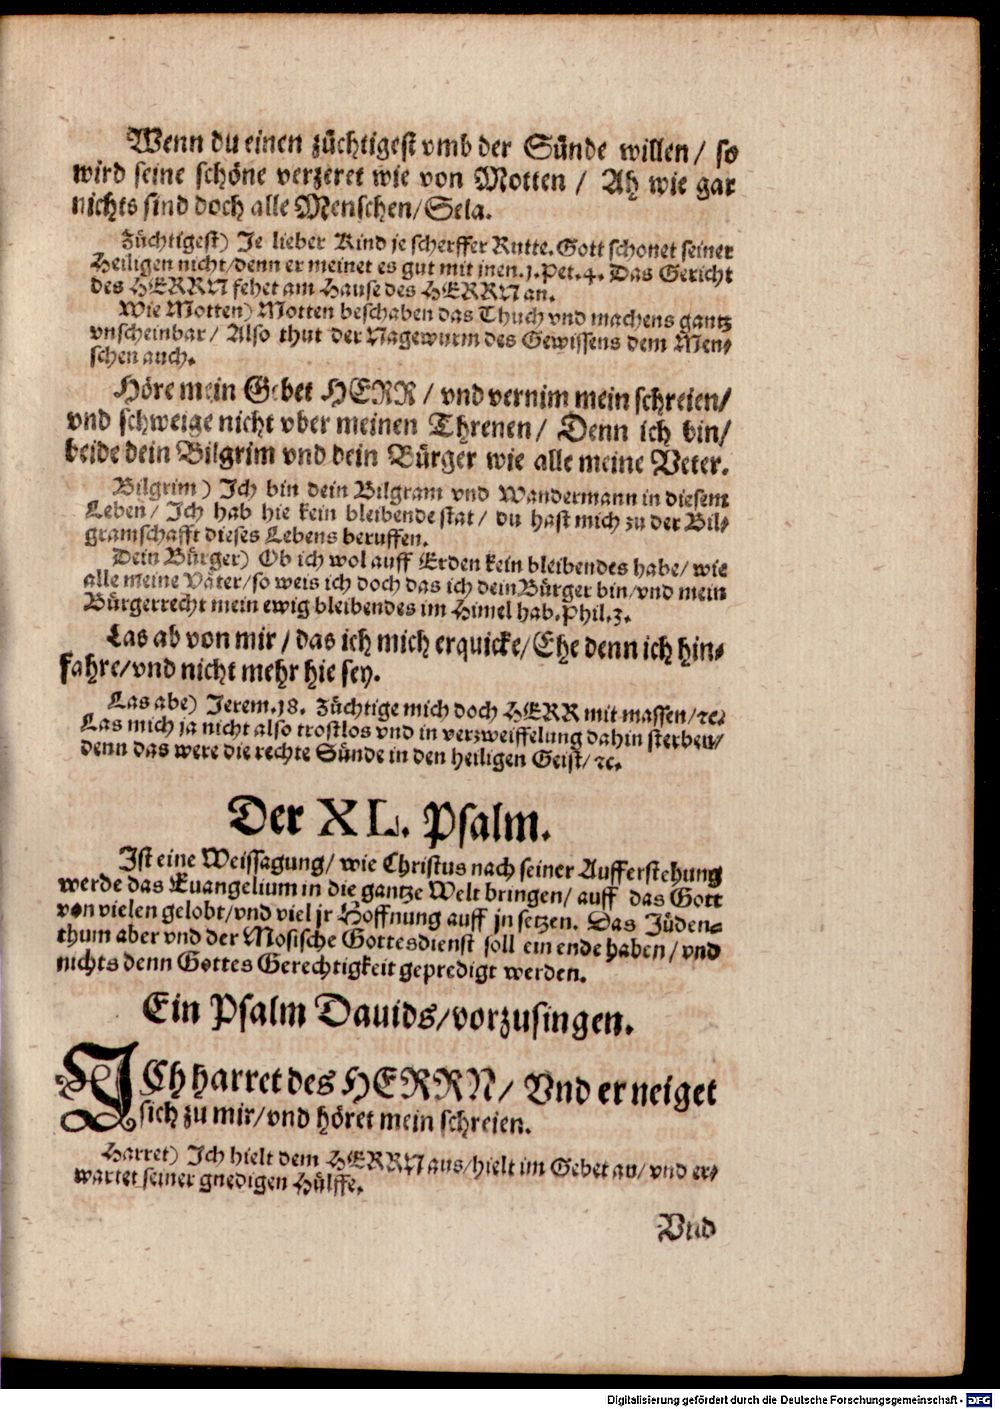 Wenn du einen züchtigest vmb der Sünde willen / so
wird seine schöne verzeret wie von Motten / Ah wie gar
nichts sind doch alle Menschen / Sela.
Züchtigest) Je lieber Kind je scherffer Rutte. Gott schonet seiner
Heiligen nicht / denn er meinet es gut mit jnen. 1. Pet. 4. Das Gericht
des HERRN fehet am Hause des HERRN an.
Wie Motten) Motten beschaben das Thuch vnd machens gantz
vnscheinbar / Also thut der Nagewurm des Gewissens dem Men-
schen auch.
Höre mein Gebet HERR / vnd vernim mein schreien /
vnd schweige nicht vber meinen Threnen / Denn ich bin /
beide dein Bilgrim vnd dein Bürger wie alle meine Veter.
Bilgrim) Ich bin dein Bilgram vnd Wandermann in diesem
Leben / Ich hab hie kein bleibende stat / du hast mich zu der Bil-
gramschafft dieses Lebens beruffen.
Dein Bürger) Ob ich wol auff Erden kein bleibendes habe / wie
alle meine Väter / so weis ich doch das ich dein Bürger bin / vnd mein
Bürgerrecht mein ewig bleibendes im Himel hab. Phil. 3.
Las ab von mir / das ich mich erquicke / Ehe denn ich hin-
fahre / vnd nicht mehr hie sey.
Las abe) Jerem. 18. Züchtige mich doch HERR mit massen / ꝛc.
Las mich ja nicht also trostlos vnd in verzweiffelung dahin sterben /
denn das were die rechte Sünde in den heiligen Geist / ꝛc.
Der XL. Psalm.
Ist eine Weissagung / wie Christus nach seiner Aufferstehung
werde das Euangelium in die gantze Welt bringen / auff das Gott
von vielen gelobt / vnd viel jr Hoffnung auff jn setzen. Das Jüden-
thum aber vnd der Mosische Gottesdienst soll ein ende haben / vnd
nichts denn Gottes Gerechtigkeit gepredigt werden.
Ein Psalm Dauids / vorzusingen.
ICh harret des HERRN / Vnd er neiget
sich zu mir / vnd höret mein schreien.
Harret) Ich hielt dem HERRN aus / hielt im Gebet an / vnd er-
wartet seiner gnedigen Hülffe.
Vnd
Digitalisierung gefördert durch die Deutsche Forschungsgemeinschaft - DFG